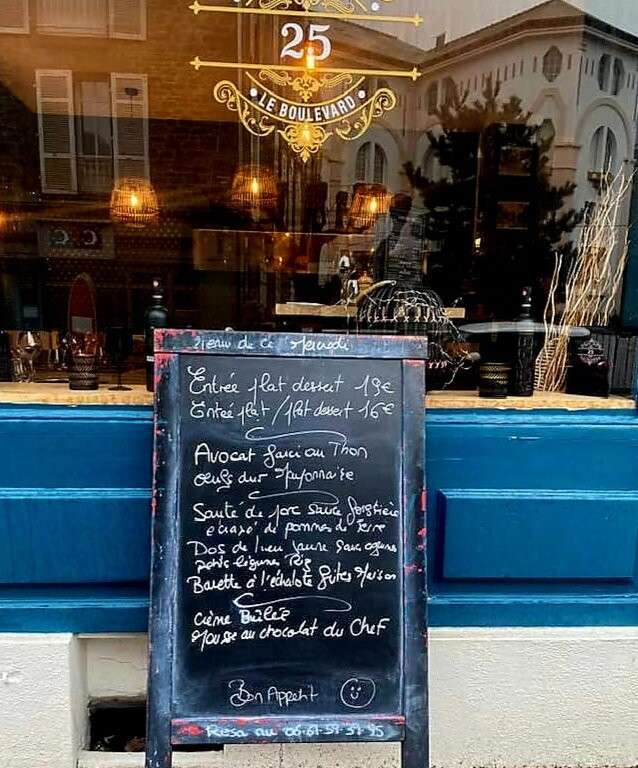 25
LE BOULEVARD
Menu de ce Mercredi
Entrée plat dessert 19€
Entrée plat / plat dessert 16€
Avocat farci au Thon
Oeufs dur Mayonnaise
Sauté de porc sauce forestière
écrasé de pommes de Terre
Dos de lieu jaune sauce
petits légumes Riz
Bavette à l'échalote frites Maison
Crème Brûlée
Mousse au chocolat du Chef
Bon Appetit
Resa au